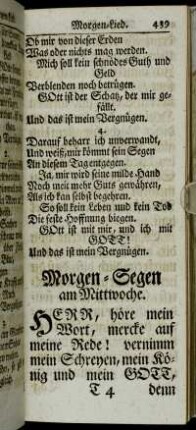 Morgen-Lied. 439
Ob mir von dieser Erden
Was oder nichts mag werden.
Mich soll kein schnödes Guth und
Geld
Verblenden noch betrügen.
GOtt ist der Schatz, der mir ge-
fällt,
Und das ist mein Vergnügen.
4.
Darauf beharr ich unverwandt,
Und weiß, mir kömmt sein Segen
An diesem Tag entgegen.
Ja, mir wird seine milde Hand
Noch mehr Guts gewähren,
Als ich kan selbst begehren.
So soll kein Leben und kein Tod
Die feste Hoffnung biegen.
GOtt ist mit mir, und ich mit
GOTT!
Und das ist mein Vergnügen.
Morgen-Segen
am Mittwoche.
HERR, höre mein
Wort, mercke auf
meine Rede! vernimm
mein Schreyen, mein Kö-
nig und mein GOTT,
T 4 denn